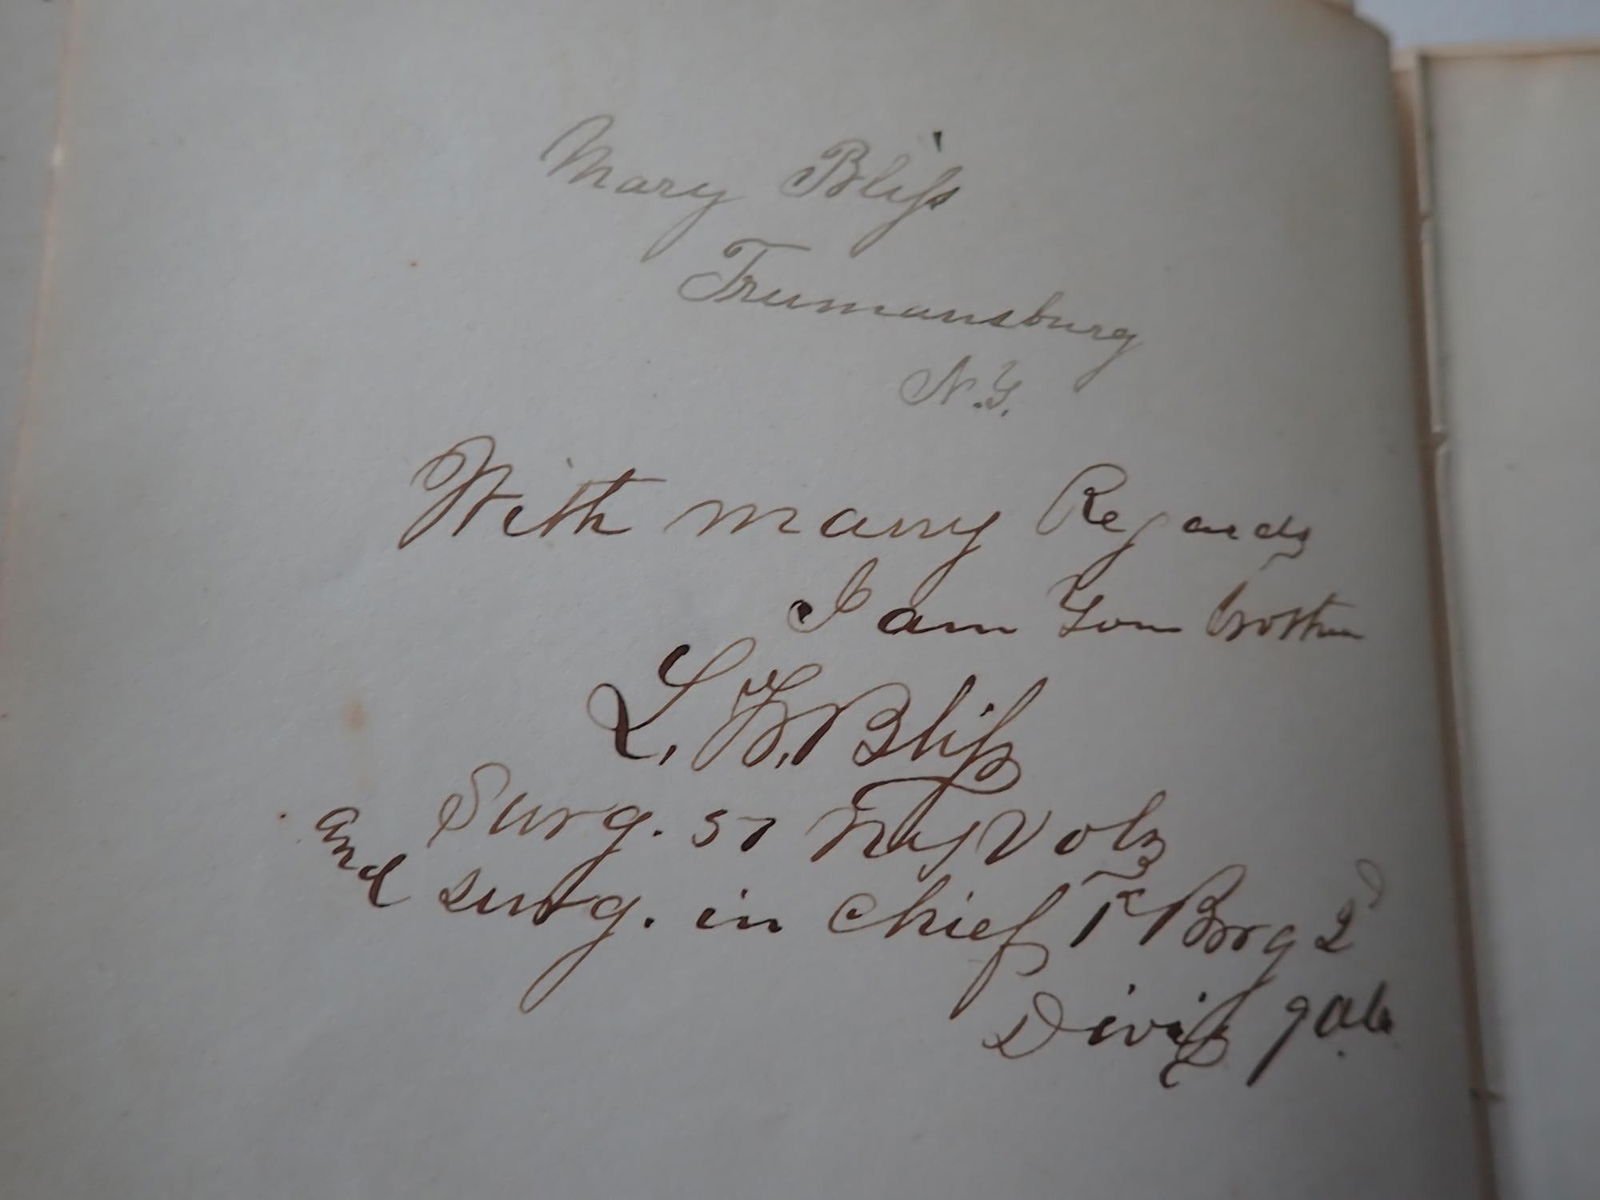 Mary Bliss
Trumansburg
N.Y.
With many Regards
I am Your brother
L. W. Bliss
Surg. 51 NYS Vols
and surg. in Chief 1st Brig 2d
Divis 9 A.C.